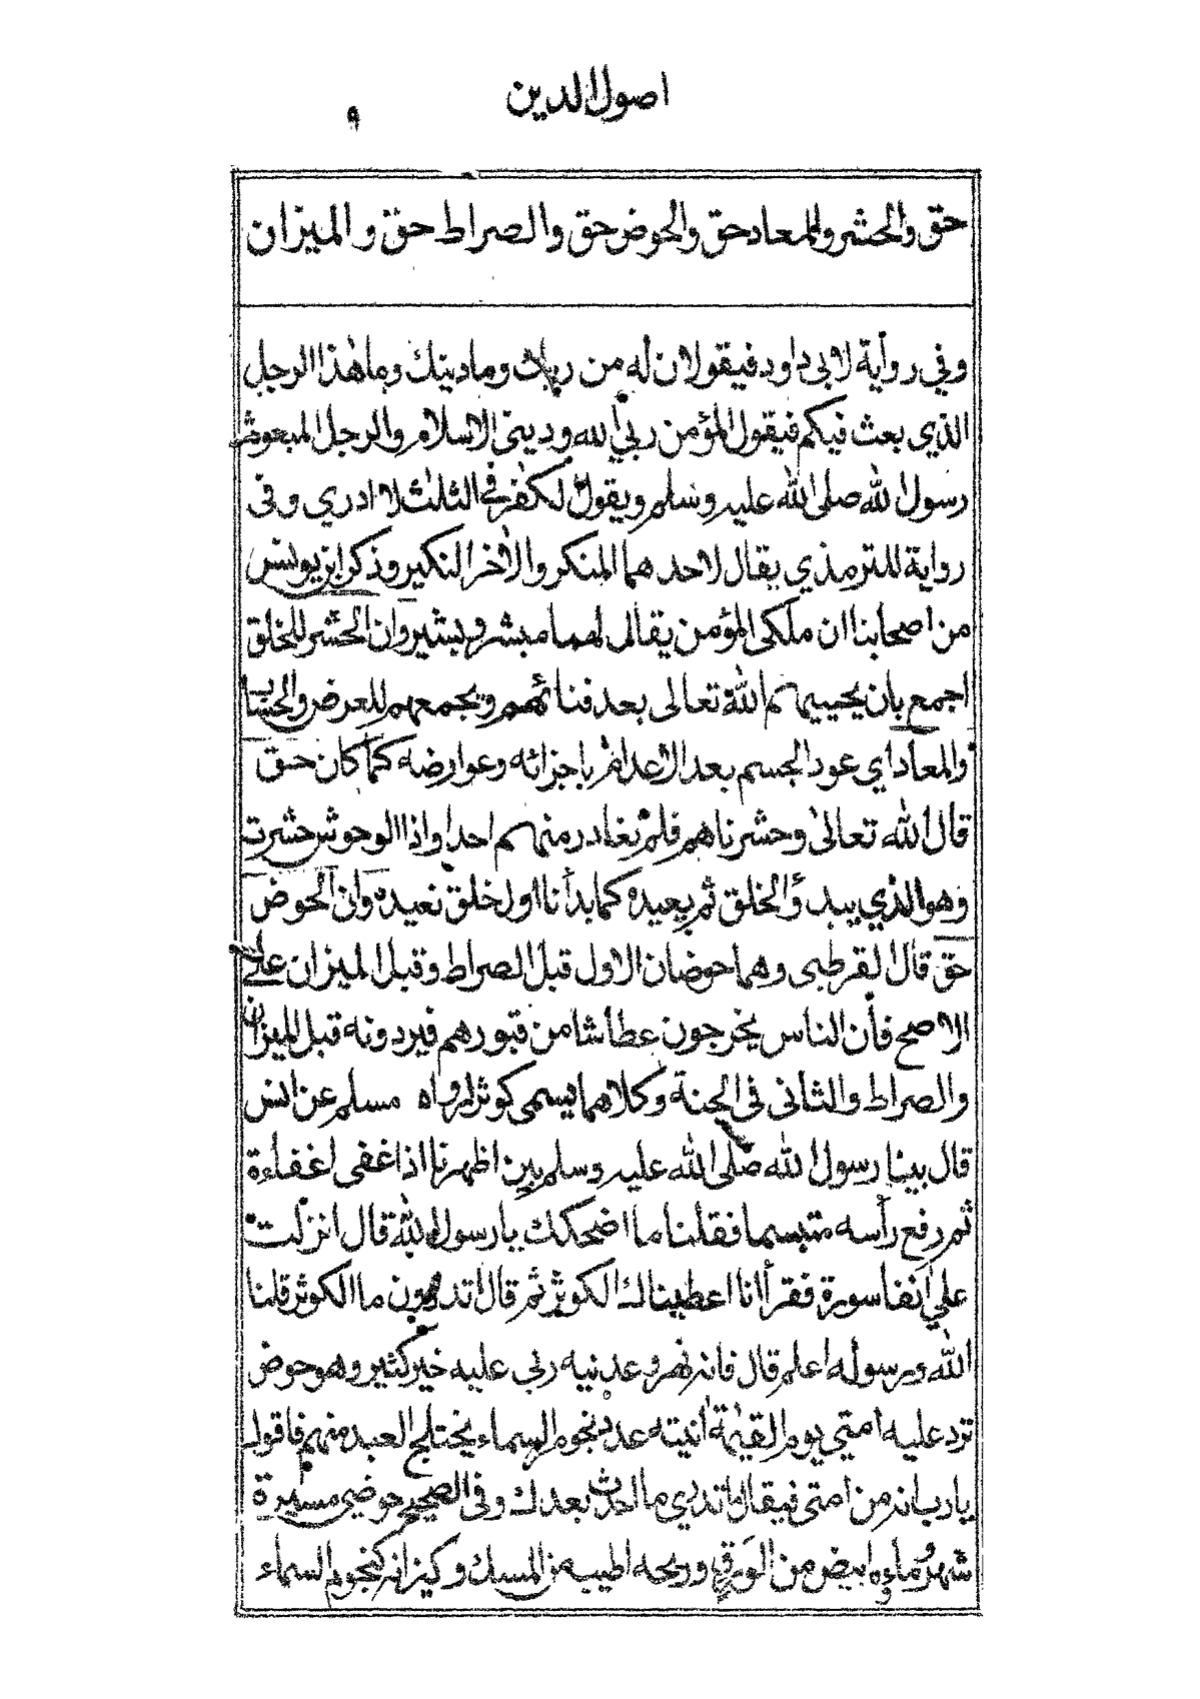 اصول الدين
٩
حق والحشر والمعاد حق والحوض حق والصراط حق والميزان
وفي رواية لابي داود فيقولان له من ربك وما دينك وما هذا الرجل
الذي بعث فيكم فيقول المؤمن ربي الله وديني الاسلام والرجل المبعوث
رسول الله صلى الله عليه وسلم ويقول لكفر في الثلث لا ادري وفى
رواية للترمذي يقال لاحدهما المنكر والاخر النكير وذكر ابن يونس
من اصحابنا ان ملكى المؤمن يقال لهما مبشر وبشير وان الحشر للخلق
اجمع بان يحييهم الله تعالى بعد فنائهم ويجمعهم للعرض والحساب
والمعاد اي عود الجسم بعد الاعدام باجزائه وعوارضه كما كان حق
قال الله تعالى وحشرناهم فلم نغادر منهم احدا واذا الوحوش حشرت
وهو الذي يبدؤ الخلق ثم يعيده كما بدأنا اول خلق نعيده وان الحوض
حق قال القرطبى وهما حوضان الاول قبل الصراط وقبل الميزان على
الاصح فأن الناس يخرجون عطاشا من قبورهم فيردونه قبل الميزان
والصراط والثانى فى الجنة وكلاهما يسمى كوثرا رواه مسلم عن انس
قال بينا رسول الله صلى الله عليه وسلم بين اظهرنا اذا غفى اغفاءة
ثم رفع رأسه متبسما فقلنا ما اضحكك يا رسول الله قال انزلت
علي آنفا سورة فقرأ انا اعطيناك الكوثر ثم قال اتدرون ما الكوثر قلنا
الله ورسوله اعلم قال فانه نهر وعدنيه ربى عليه خير كثير وهو حوض
ترد عليه امتي يوم القيمة آنيته عدد نجوم السماء يختلج العبد منهم فاقول
يا رب انه من امتى فيقال ما تدري ما احدث بعدك وفى الصحيح حوضى مسيرة
شهر وماؤه ابيض من الورق وريحه اطيب من المسك وكيزانه كنجوم السماء